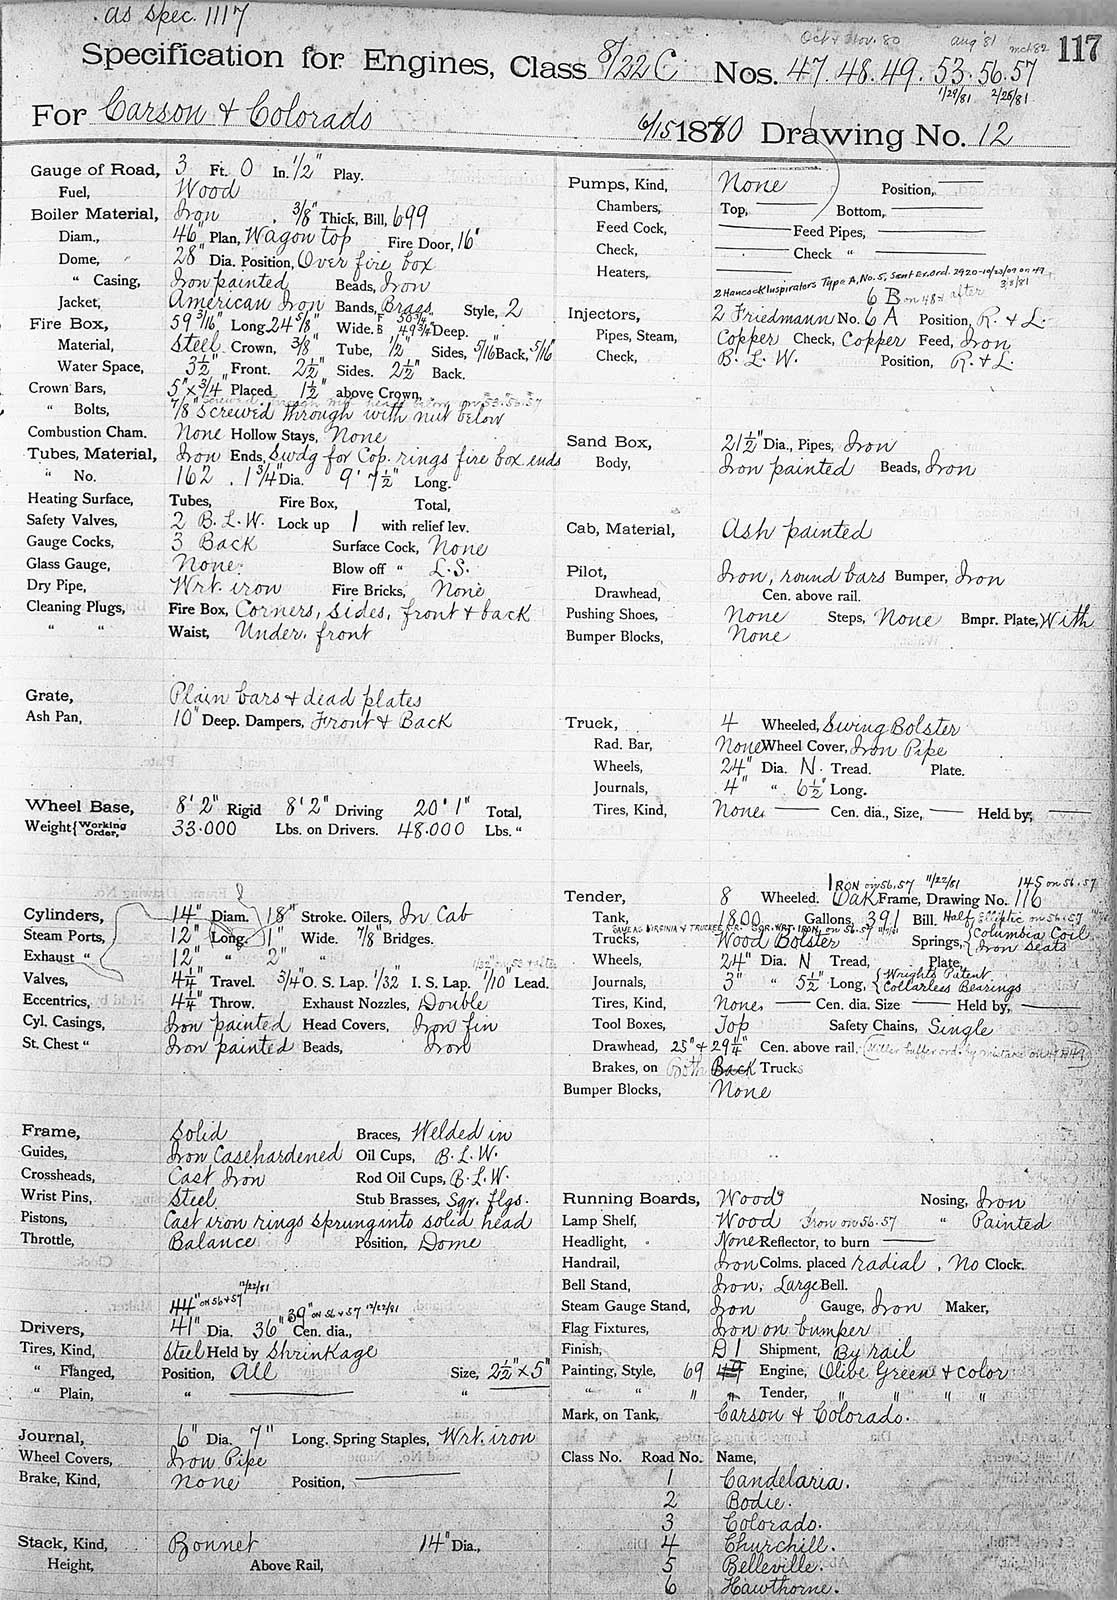 as spec. 1117
Oct & Nov. 80 Aug '81 mch 82 117
Specification for Engines, Class 8/22 C Nos. 47. 48. 49. 53. 56. 57
1/29/81 2/25/81
For Carson & Colorado 6/15 1880 Drawing No. 12
Gauge of Road, 3 Ft. 0 In. 1/2" Play.
Fuel, Wood
Boiler Material, Iron 3/8" Thick, Bill, 699
Diam., 46" Plan, Wagon top Fire Door, 16"
Dome, 28" Dia. Position, Over fire box
" Casing, Iron painted Beads, Iron
Jacket, American Iron Bands, Brass Style, 2
Fire Box, 59 3/16" Long 24 5/8" Wide. F B 49 3/4 Deep.
Material, Steel Crown, 3/8" Tube, 1/2" Sides, 5/16 Back, 5/16"
Water Space, 3 1/2" Front. 2 1/2" Sides. 2 1/2" Back.
Crown Bars, 5" x 3/4" Placed 1 1/2" above Crown,
" Bolts, 7/8 screwed through with nut below
Combustion Cham. None Hollow Stays, None
Tubes, Material, Iron Ends, Swdg for Cop. rings fire box ends
" No. 162 . 1 3/4" Dia. 9' 7 1/2" Long.
Heating Surface, Tubes, Fire Box, Total,
Safety Valves, 2 B. L. W. Lock up 1 with relief lev.
Gauge Cocks, 3 Back Surface Cock, None
Glass Gauge, None. Blow off " L. S.
Dry Pipe, Wrt. iron Fire Bricks, None
Cleaning Plugs, Fire Box, Corners, sides, front & back
" " Waist, Under, front
Grate, Plain bars & dead plates
Ash Pan, 10" Deep. Dampers, Front & Back
Wheel Base, 8' 2" Rigid 8' 2" Driving 20' 1" Total,
Weight { Working Order, 33.000 Lbs. on Drivers. 48.000 Lbs. "
Cylinders, 14" Diam. 18" Stroke. Oilers, In Cab
Steam Ports, 12" Long. 1" Wide. 7/8" Bridges.
Exhaust " 12" " 2" "
Valves, 4 1/4" Travel. 3/4" O. S. Lap. 1/32 I. S. Lap. 1/10" Lead.
Eccentrics, 4 1/4" Throw. Exhaust Nozzles, Double
Cyl. Casings, Iron painted Head Covers, Iron fin
St. Chest " Iron painted Beads, Iron
Frame, Solid Braces, Welded in
Guides, Iron Casehardened Oil Cups, B. L. W.
Crossheads, Cast Iron Rod Oil Cups, B. L. W.
Wrist Pins, Steel Stub Brasses, Sqr. flgs.
Pistons, Cast iron rings sprung into solid head
Throttle, Balance Position, Dome
44" on 56 & 57 12/22/81 39" on 56 & 57 12/22/81
Drivers, 41" Dia. 36" Cen. dia.,
Tires, Kind, Steel Held by Shrinkage
" Flanged, Position, All Size, 2 1/2" x 5"
" Plain, " "
Journal, 6" Dia. 7" Long. Spring Staples, Wrt. iron
Wheel Covers, Iron Pipe
Brake, Kind, None Position,
Stack, Kind, Bonnet 14" Dia.,
Height, Above Rail,
Pumps, Kind, None Position,
Chambers, Top, Bottom,
Feed Cock, Feed Pipes,
Check, Check "
Heaters,
2 Hancock Inspirators Type A, No. 5, Sent Ex. Ord. 2920-10/23/09 on 49
6 B on 48 & after 3/8/81
Injectors, 2 Friedmann No. 6 A Position, R. & L.
Pipes, Steam, Copper Check, Copper Feed, Iron
Check, B. L. W. Position, R. & L.
Sand Box, 21 1/2" Dia., Pipes, Iron
Body, Iron painted Beads, Iron
Cab, Material, Ash painted
Pilot, Iron, round bars Bumper, Iron
Drawhead, Cen. above rail.
Pushing Shoes, None Steps, None Bmpr. Plate, With
Bumper Blocks, None
Truck, 4 Wheeled, Swing Bolster
Rad. Bar, None Wheel Cover, Iron Pipe
Wheels, 24" Dia. N. Tread. Plate.
Journals, 4" " 6 1/2" Long.
Tires, Kind, None. Cen. dia., Size, Held by,
Iron on 56. 57 11/22/81 145 on 56. 57
Tender, 8 Wheeled. Oak Frame, Drawing No. 116
Tank, 1800 Gallons, 391 Bill. Half Elliptic on 56. 57
Same as Virginia & Truckee R.R. Sqr. Wrt. Iron, on 56. 57
Trucks, Wood Bolster Springs, { Columbia Coil Iron Seats
Wheels, 24" Dia. N Tread, Plate,
Journals, 3" " 5 1/2" Long, { Wrights Patent Collarless Bearings
Tires, Kind, None, Cen. dia. Size Held by,
Tool Boxes, Top Safety Chains, Single
Drawhead, 25" & 29 1/4" Cen. above rail. (Miller buffer ord. by mistake on 47 & 49)
Brakes, on Both Back Trucks
Bumper Blocks, None
Running Boards, Wood Nosing, Iron
Lamp Shelf, Wood Iron on 56. 57 " Painted
Headlight, None Reflector, to burn
Handrail, Iron Colms. placed radial, No Clock.
Bell Stand, Iron, Large Bell.
Steam Gauge Stand, Iron Gauge, Iron Maker,
Flag Fixtures, Iron on bumper
Finish, D 1 Shipment, By rail
Painting, Style, 69 49 Engine, Olive Green & color
" " " " Tender, " " " "
Mark, on Tank, Carson & Colorado.
Class No. Road No. Name,
1 Candelaria.
2 Bodie.
3 Colorado.
4 Churchill.
5 Belleville.
6 Hawthorne.